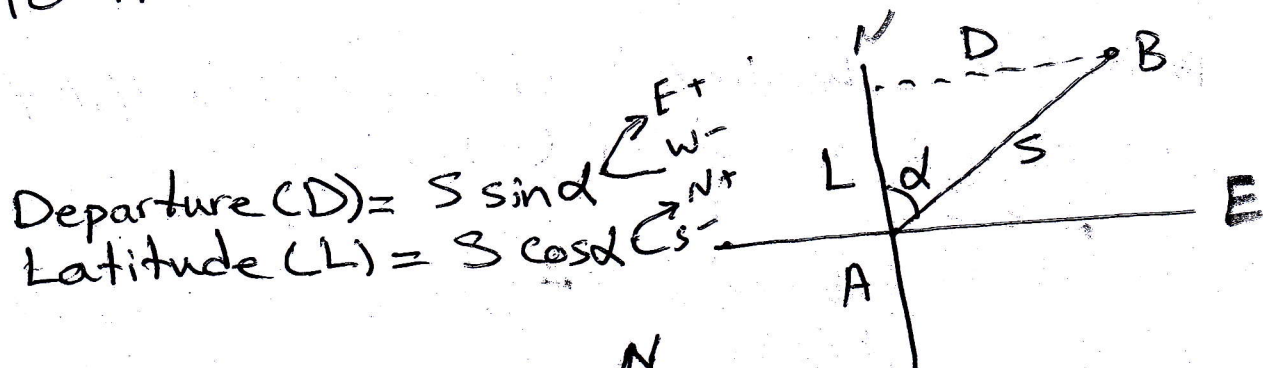 N
D
B
E+
W-
Departure (D) = S sinα
L
α
S
N+
E
Latitude (L) = S cosα
S-
A
N